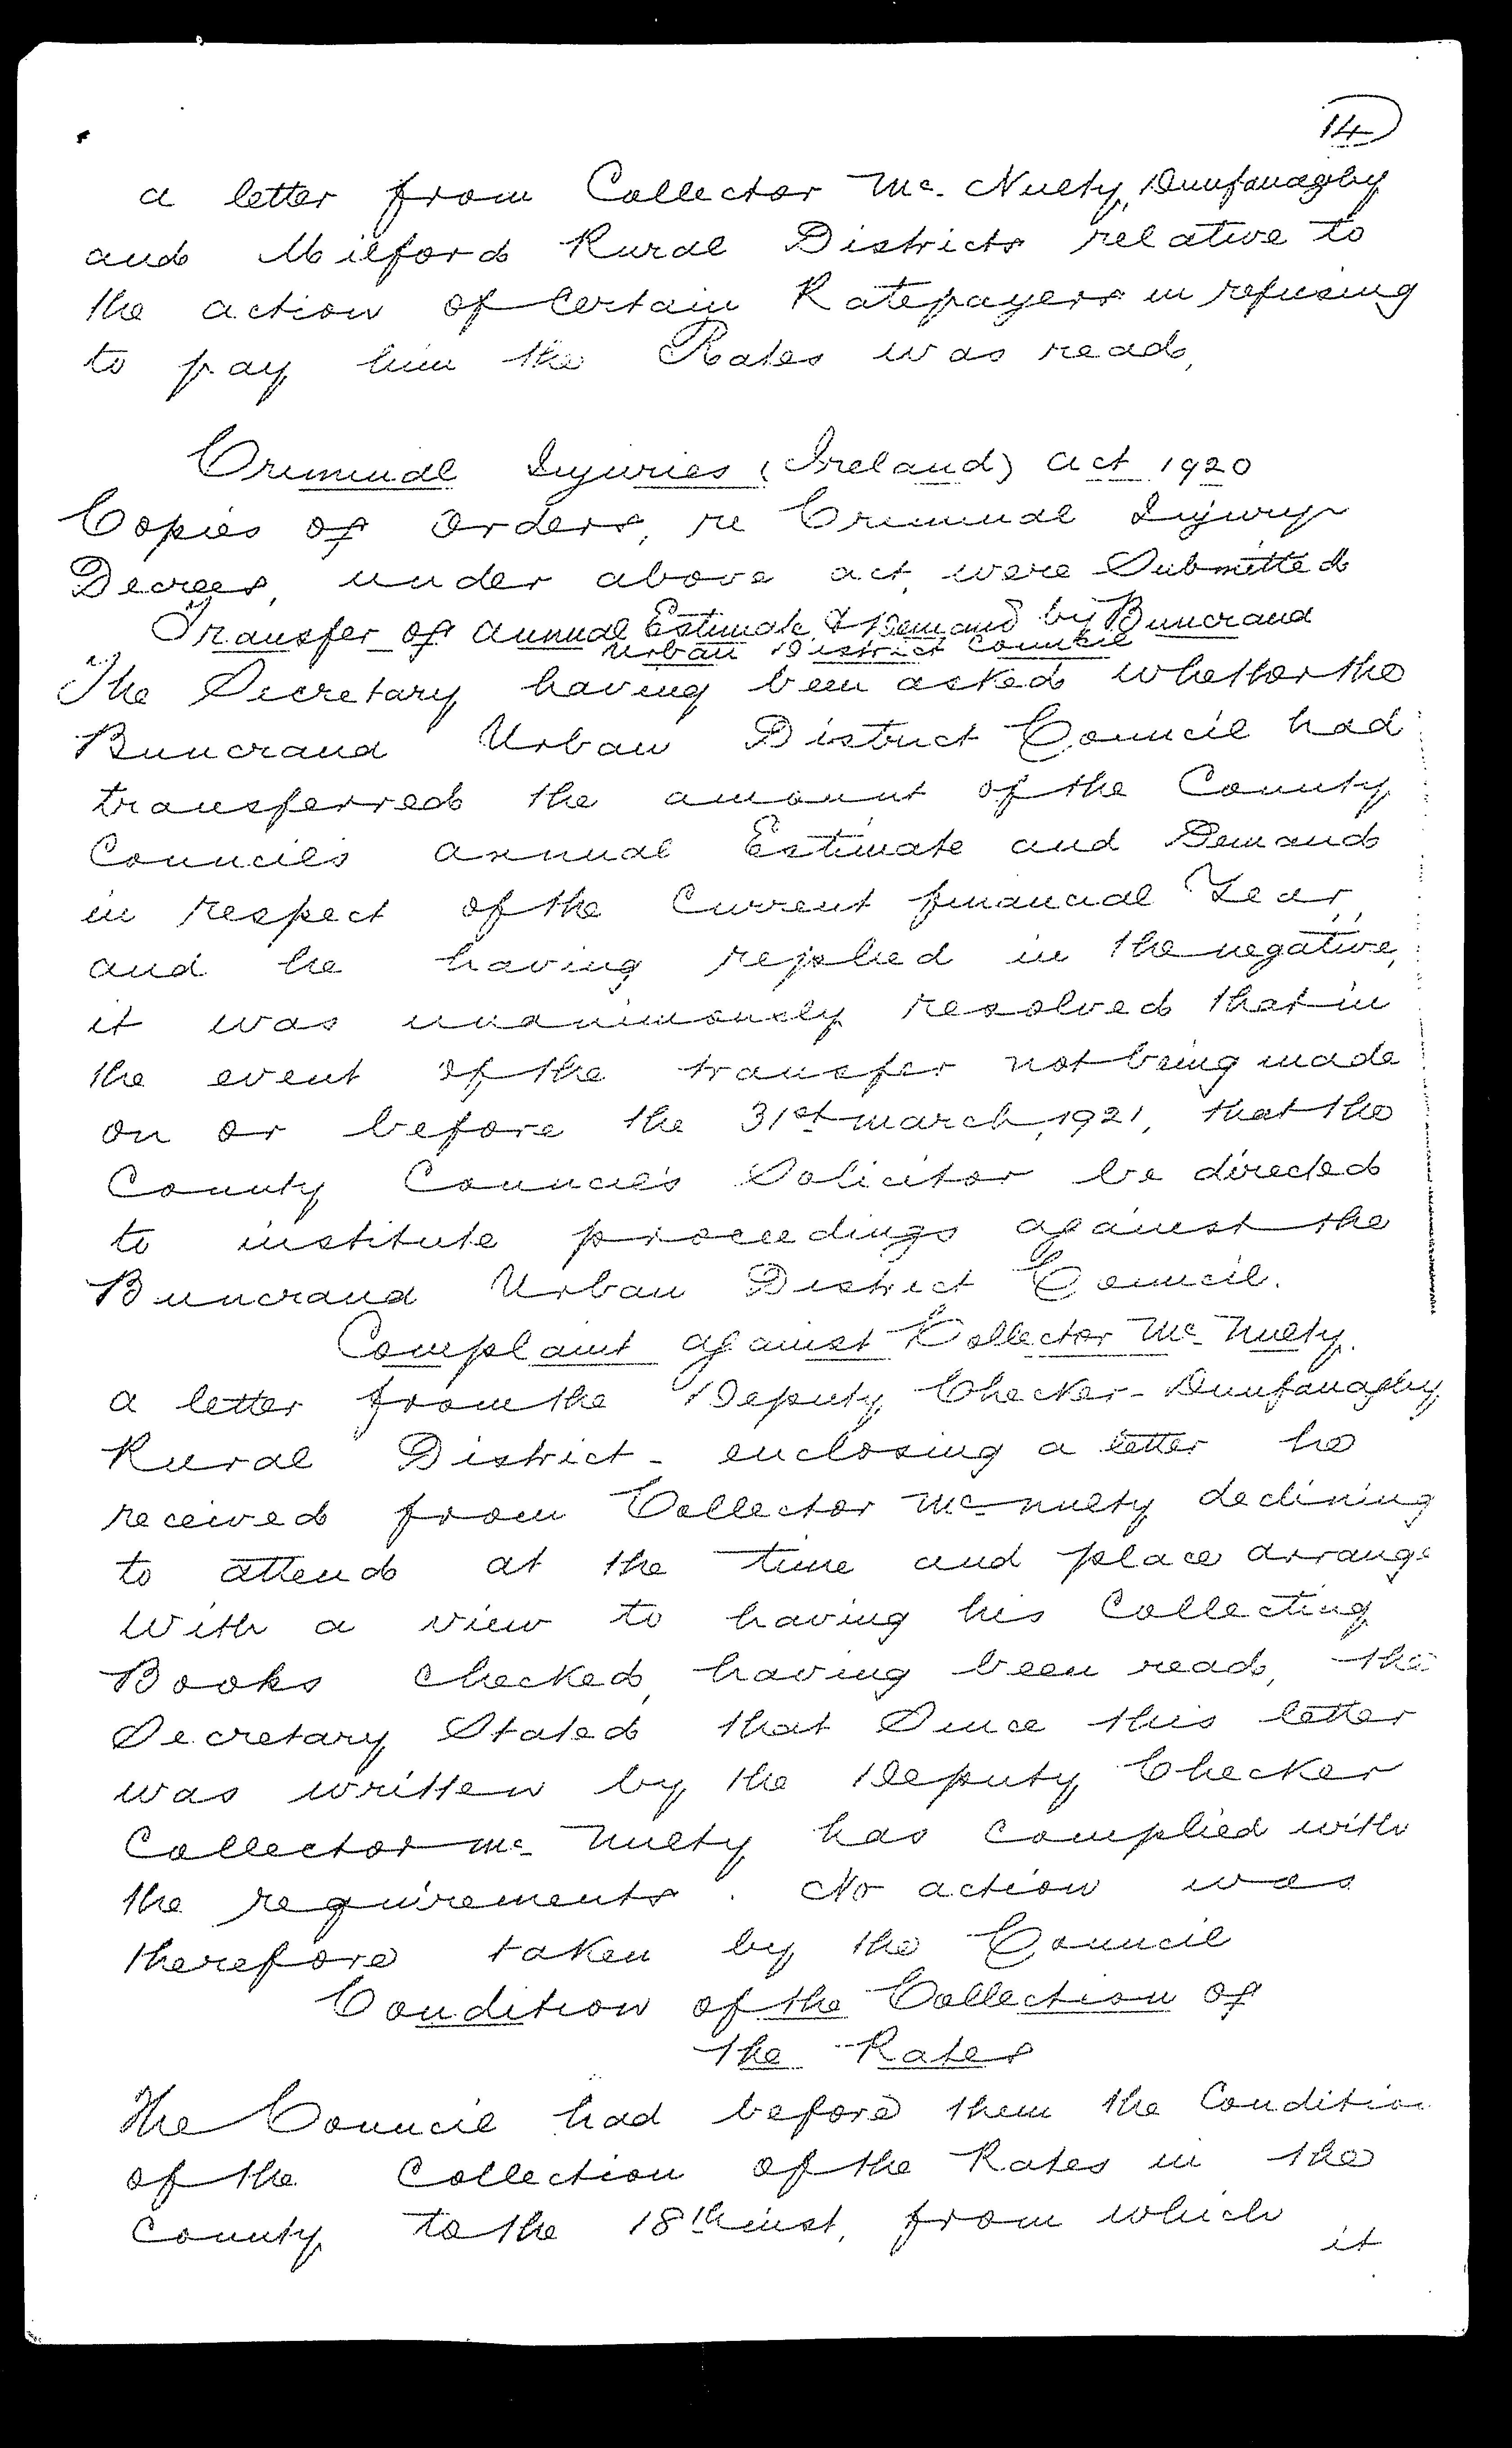 14
a letter from Collector Mc. Nulty, Dunfanaghy
and Milford Rural Districts relative to
the action of Certain Ratepayers in refusing
to pay him the Rates was read,
Criminal Injuries (Ireland) act 1920
Copies of Orders, re Criminal Injury
Decrees, under above act, were Submitted
Transfer of annual Estimate & Demand by Buncrana
Urban District Council
The Secretary having been asked whether the
Buncrana Urban District Council had
transferred the amount of the County
Councils annual Estimate and Demand
in respect of the Current financial Year,
and he having replied in the negative,
it was unanimously resolved that in
the event of the transfer not being made
on or before the 31st march, 1921, that the
County Council's Solicitor be directed
to institute proceedings against the
Buncrana Urban District Council.
Complaint against Collector Mc. Nulty.
a letter from the Deputy Checker - Dunfanaghy
Rural District - enclosing a letter he
received from Collector Mc nulty declining
to attend at the time and place arrange
With a view to having his Collecting
Books Checked, having been read, the
Secretary Stated that Since this letter
was written by the Deputy Checker
Collector Mc. Nulty has Complied with
the requirements. No action was
therefore taken by the Council
Condition of the Collection of
the Rates
The Council had before them the Condition
of the Collection of the Rates in the
County, to the 18th inst, from which
it